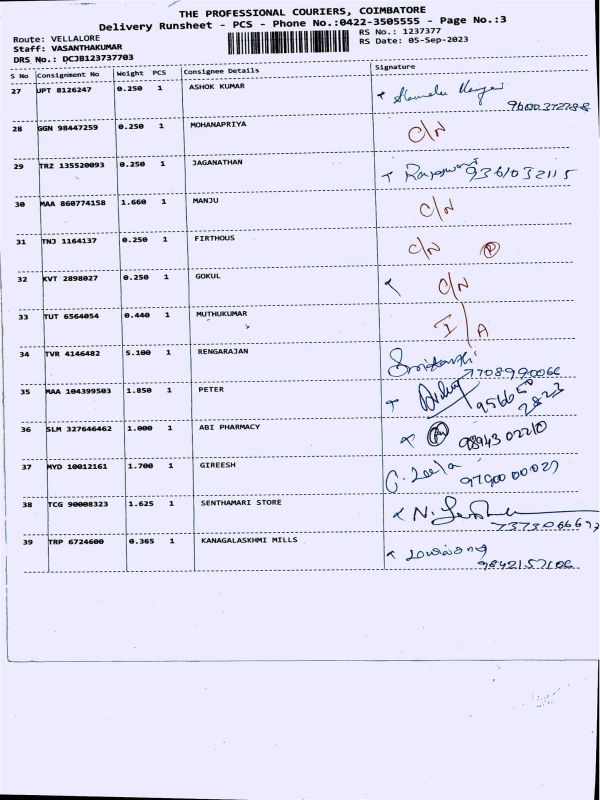 THE PROFESSIONAL COURIERS, COIMBATORE
Delivery Runsheet - PCS - Phone No.:0422-3505555 - Page No.:3
Route: VELLALORE
RS No.: 1237377
Staff: VASANTHAKUMAR
RS Date: 05-Sep-2023
DRS No.: DCJB123737703
S No Consignment No Weight PCS Consignee Details Signature
27 UPT 8126247 0.250 1 ASHOK KUMAR
28 GGN 98447259 0.250 1 MOHANAPRIYA C/N
29 TRZ 135520093 0.250 1 JAGANATHAN 9361032115
30 MAA 860774158 1.660 1 MANJU C/N
31 TNJ 1164137 0.250 1 FIRTHOUS C/N
32 KVT 2898027 0.250 1 GOKUL C/N
33 TUT 6564054 0.440 1 MUTHUKUMAR I/A
34 TVR 4146482 5.100 1 RENGARAJAN 7708990066
35 MAA 104399503 1.850 1 PETER
36 SLM 327646462 1.000 1 ABI PHARMACY 98943 02210
37 MYD 10012161 1.700 1 GIREESH G. Leela 9790000027
38 TCG 90008323 1.625 1 SENTHAMARI STORE
39 TRP 6724600 0.365 1 KANAGALASKHMI MILLS 9842157106